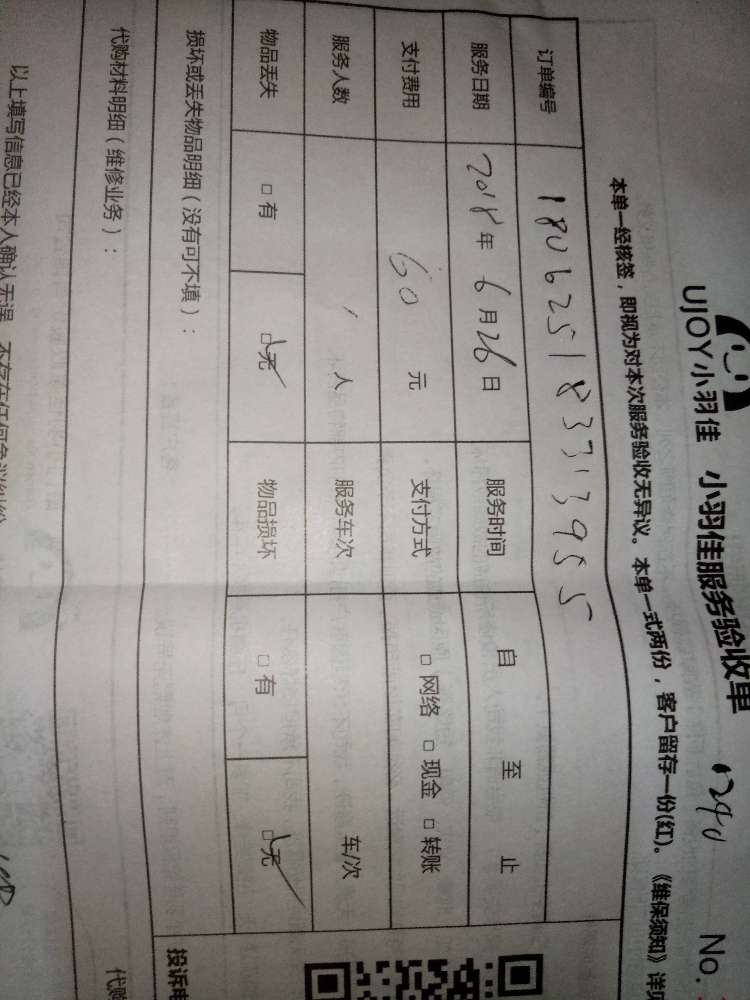 UJOY小羽佳 小羽佳服务验收单 1240 No.
本单一经核签，即视为对本次服务验收无异议。本单一式两份，客户留存一份(红)。《维保须知》详
订单编号 180625183313955
服务日期 2018年6月26日 服务时间 自 至 止
支付费用 60元 支付方式 □ 网络 □ 现金 □ 转账
服务人数 1人 服务车次 车/次
物品丢失 □ 有 □ 无 物品损坏 □ 有 □ 无
损坏或丢失物品明细（没有可不填）： 投诉电
代购材料明细（维修业务）： 代购
以上填写信息已经本人确认无误，不存在任何争议纠纷